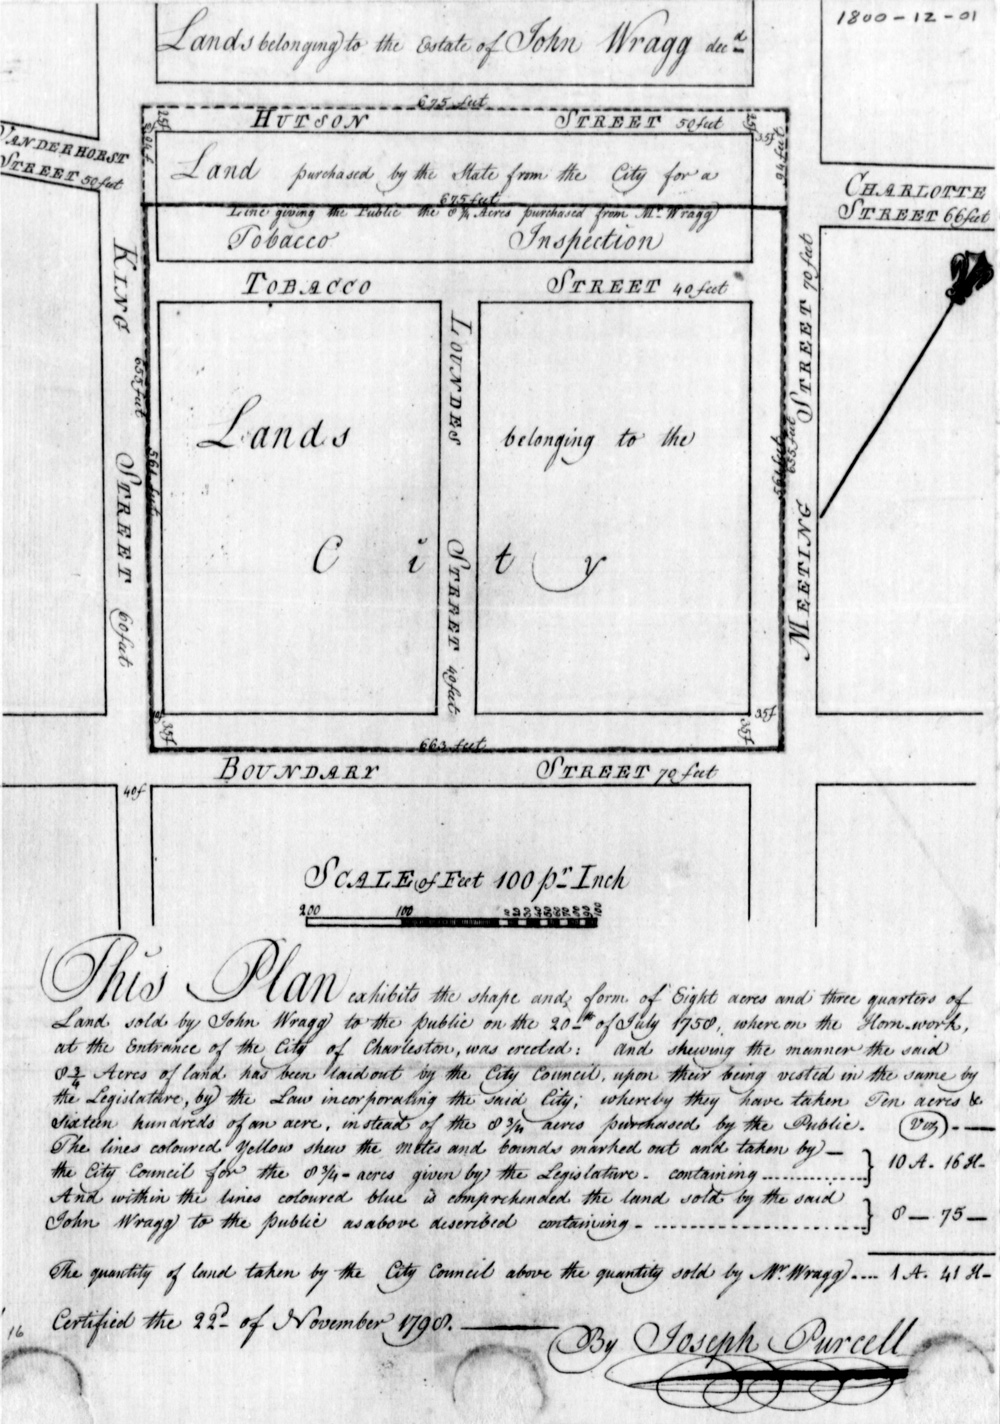 1800-12-01
Lands belonging to the Estate of John Wragg decd
675 feet
HUTSON STREET 50 feet
25f
25f
35f
94 feet
VANDERHORST
STREET 50 feet
Land purchased by the State from the City for a
675 feet
Line giving the Public the 8 3/4 Acres purchased from Mr. Wragg
Tobacco Inspection
CHARLOTTE
STREET 66 feet
TOBACCO STREET 40 feet
KING STREET 60 feet
655 feet
561 feet
LOUNDES STREET 40 feet
MEETING STREET 70 feet
561 feet
655 feet
Lands belonging to the
City
35f
35f
35f
663 feet
BOUNDARY STREET 70 feet
40f
SCALE of Feet 100 pr Inch
200 100 10 20 30 40 50 60 70 80 90 100
This Plan exhibits the shape and form of Eight acres and three quarters of
Land sold by John Wragg to the public on the 20th of July 1758, whereon the Horn-work,
at the Entrance of the City of Charleston, was erected: and shewing the manner the said
8 3/4 Acres of land has been laid out by the City Council, upon their being vested in the same by
the Legislature, by the Law incorporating the said City; whereby they have taken Ten acres &
sixteen hundreds of an acre, instead of the 8 3/4 acres purchased by the Public. (Viz)
The lines coloured Yellow shew the metes and bounds marked out and taken by
the City Council for the 8 3/4 acres given by the Legislature. containing } 10 A. 16 H
And within the lines coloured blue is comprehended the land sold by the said
John Wragg to the public as above described containing } 8 — 75 —
The quantity of land taken by the City Council above the quantity sold by Mr. Wragg .... 1 A. 41 H
Certified the 22d of November 1798.
By Joseph Purcell
16